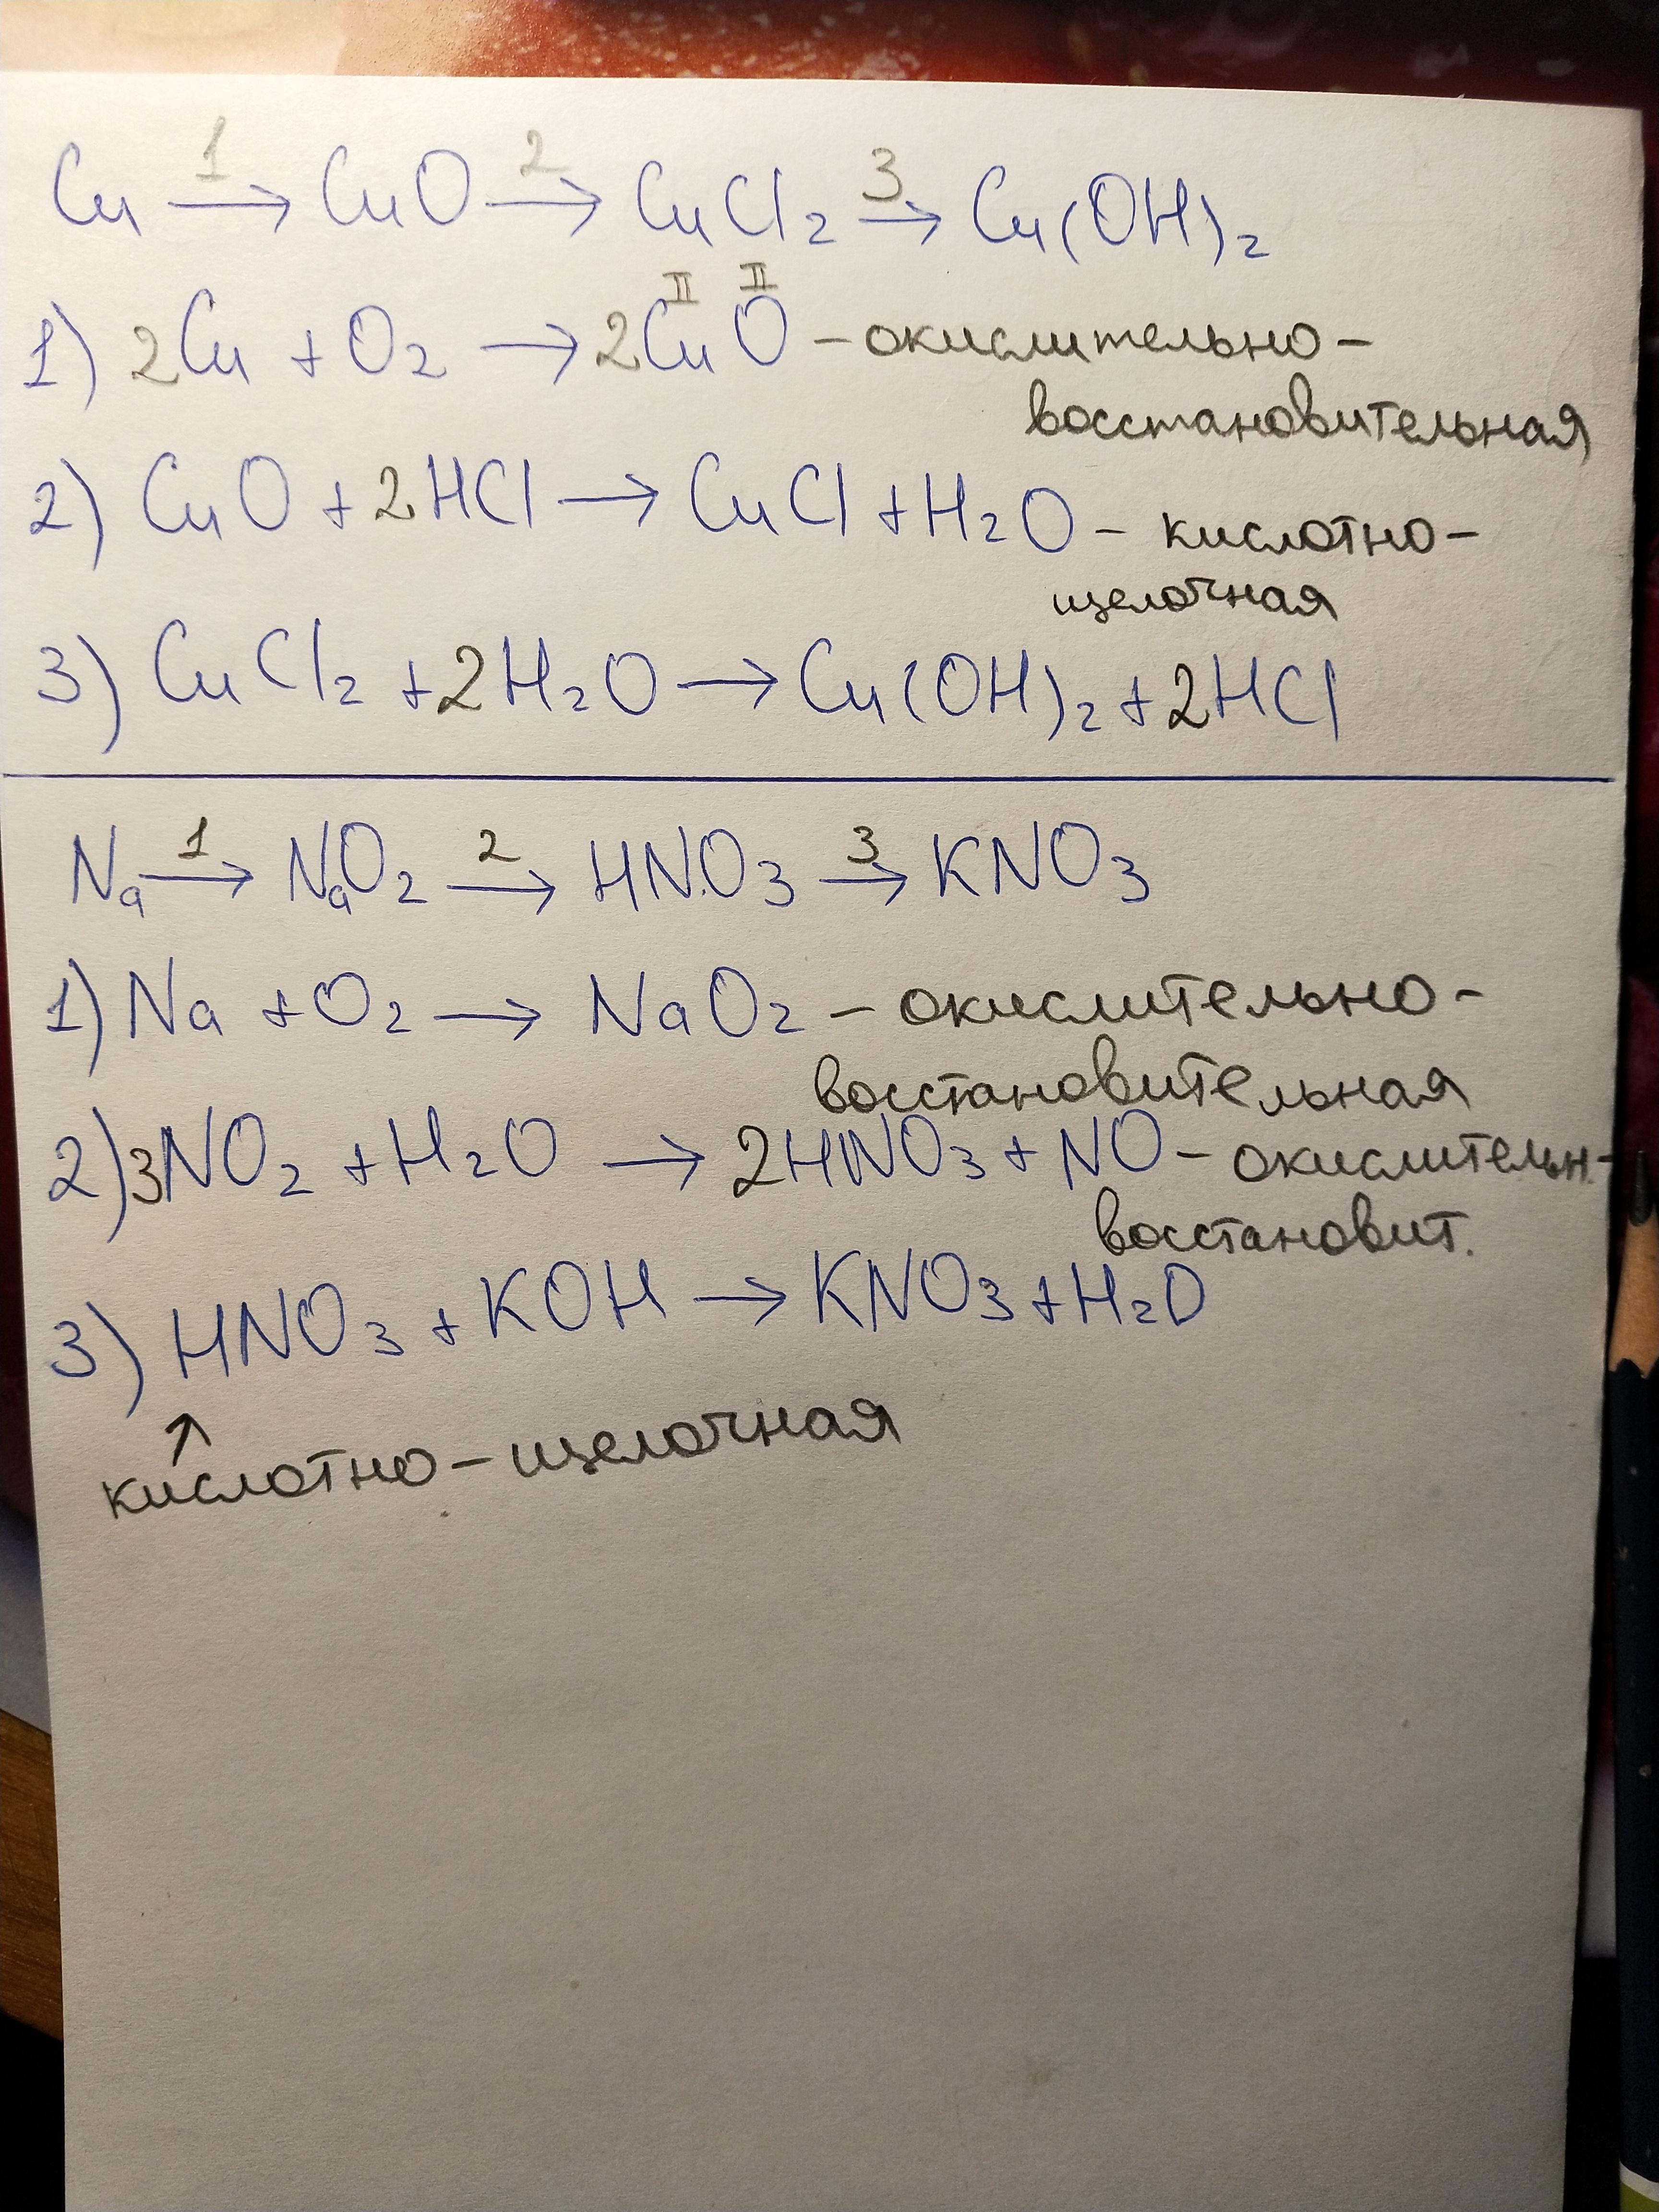 Cu 1→ CuO 2→ CuCl₂ 3→ Cu(OH)₂
1) 2Cu + O₂ → 2Cuᴵᴵ Oᴵᴵ – окислительно-
восстановительная
2) CuO + 2HCl → CuCl + H₂O – кислотно-
щелочная
3) CuCl₂ + 2H₂O → Cu(OH)₂ + 2HCl
Na 1→ NaO₂ 2→ HNO₃ 3→ KNO₃
1) Na + O₂ → NaO₂ – окислительно-
восстановительная
2) 3NO₂ + H₂O → 2HNO₃ + NO – окислительн.-
восстановит.
3) HNO₃ + KOH → KNO₃ + H₂O
↑
кислотно – щелочная